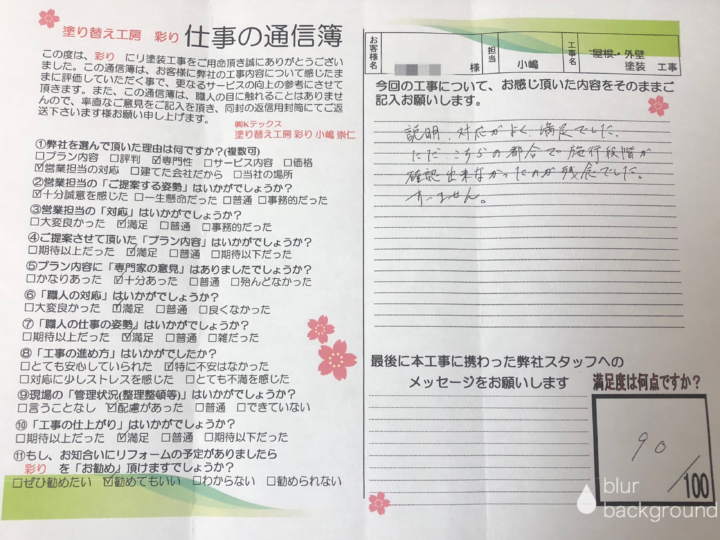 塗り替え工房 彩り 仕事の通信簿
この度は、彩り にリ塗装工事をご用命頂き誠にありがとうござい
ました。この通信簿は、お客様に弊社の工事内容について感じたま
まに評価していただく事で、更なるサービスの向上の参考にさせて
頂きます。また、この通信簿は、職人の目に触れることはありませ
んので、率直なご意見をご記入を頂き、同封の返信用封筒にてご返
送下さいます様お願い申し上げます。
㈱Kテックス
塗り替え工房 彩り 小嶋 崇仁
①弊社を選んで頂いた理由は何ですか?(複数可)
□プラン内容 □評判 ☑専門性 □サービス内容 □価格
☑営業担当の対応 □建てた会社だから □当社の場所
②営業担当の「ご提案する姿勢」はいかがでしょうか?
☑十分誠意を感じた □一生懸命だった □普通 □事務的だった
③営業担当の「対応」はいかがでしょうか?
□大変良かった ☑満足 □普通 □事務的だった
④ご提案させて頂いた「プラン内容」はいかがでしょうか?
□期待以上だった ☑満足 □普通 □期待以下だった
⑤プラン内容に「専門家の意見」はありましたでしょうか?
□かなりあった ☑十分あった □普通 □殆んどなかった
⑥「職人の対応」はいかがでしょうか?
□大変良かった ☑満足 □普通 □良くなかった
⑦「職人の仕事の姿勢」はいかがでしょうか?
□期待以上だった ☑満足 □普通 □雑だった
⑧「工事の進め方」はいかがでしたか?
□とても安心していられた ☑特に不安はなかった
□対応に少しストレスを感じた □とても不満を感じた
⑨現場の「管理状況(整理整頓等)」はいかがでしょうか?
□言うことなし ☑配慮があった □普通 □できていない
⑩「工事の仕上がり」はいかがでしょうか?
□期待以上だった ☑満足 □普通 □期待以下だった
⑪もし、お知合いにリフォームの予定がありましたら
彩り を「お勧め」頂けますでしょうか?
□ぜひ勧めたい ☑勧めてもいい □わからない □勧められない
お客様名 様 担当 小嶋 工事名 屋根・外壁 塗装 工事
今回の工事について、お感じ頂いた内容をそのままご
記入お願いします。
説明、対応がよく、満足でした。
ただ、こちらの都合で施行段階が
確認出来なかったのが残念でした。
すいません。
最後に本工事に携わった弊社スタッフへの
メッセージをお願いします
満足度は何点ですか?
90
/100
blur
background